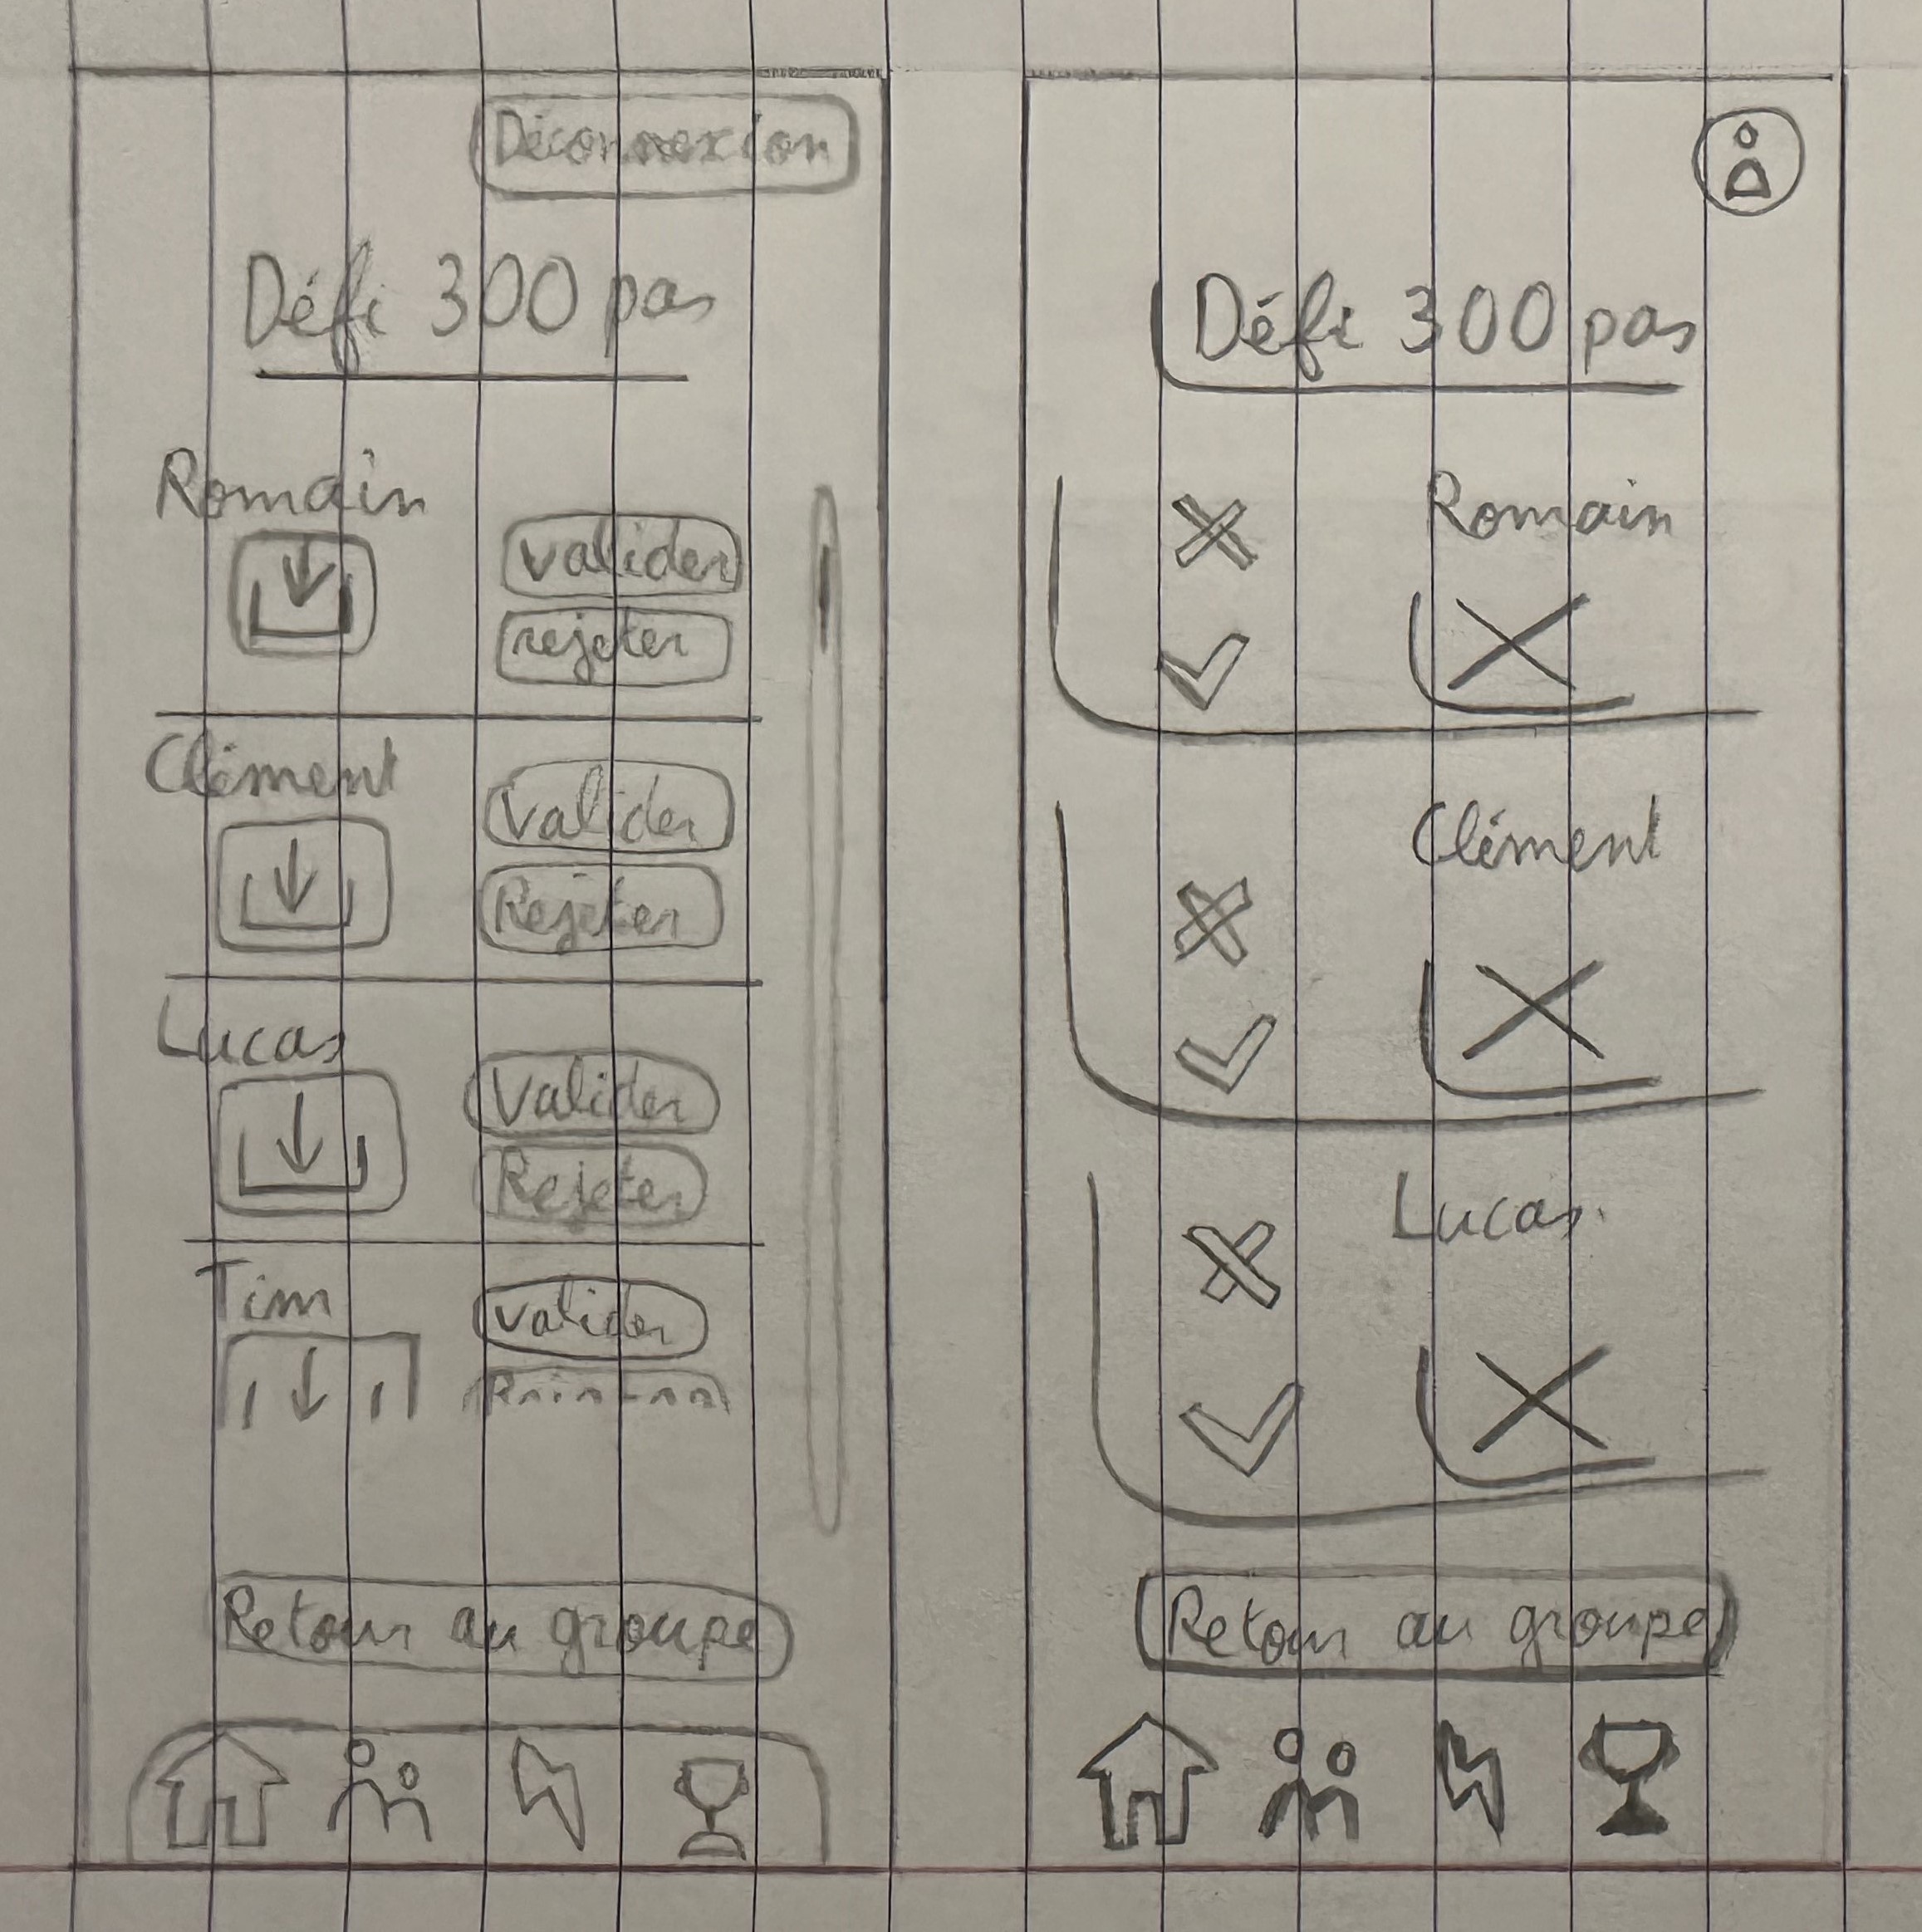 Déconnexion
Défi 300 pas
Romain
valider
rejeter
Clément
Valider
Rejeter
Lucas
Valider
Rejeter
Tim
valider
Retour au groupe
Défi 300 pas
Romain
Clément
Lucas
Retour au groupe